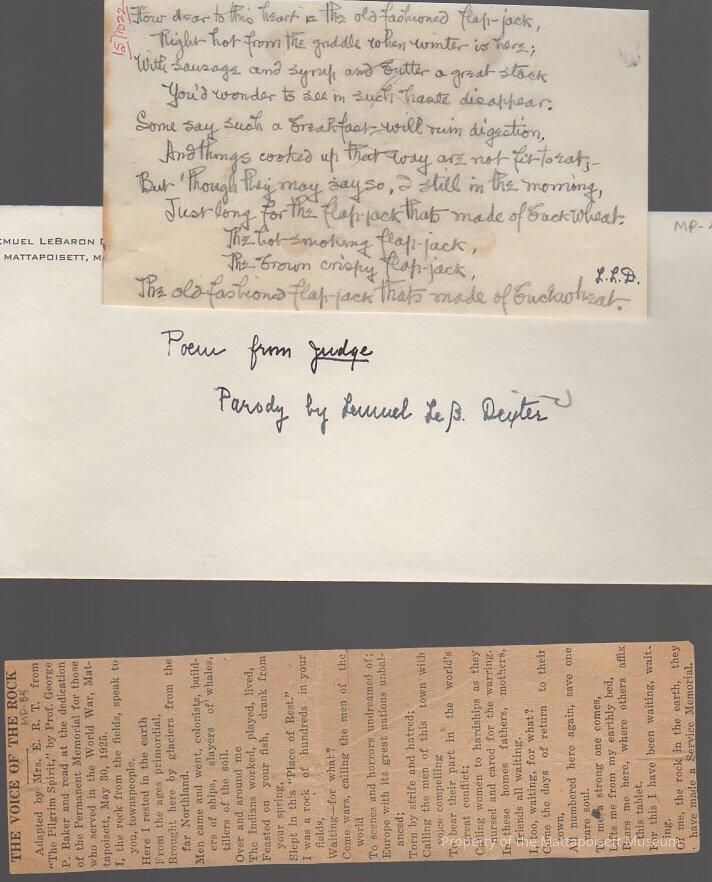 157022
How dear to this heart is the old fashioned flap-jack,
Right hot from the griddle when winter is here;
With sausage and syrup and butter a great stack
You'd wonder to see in such haste disappear.
Some say such a breakfast will ruin digestion,
And things cooked up that way are not fit to eat;-
But 'though they may say so, I still in the morning,
Just long for the flap-jack thats made of buckwheat.
The hot smoking flap-jack,
The brown crispy flap-jack,
L.L.D.
The old fashioned flap-jack thats made of buckwheat.
EMUEL LEBARON D
MATTAPOISETT, M
MP-
Poem from Judge
Parody by Lemuel Le B. Dexter
THE VOICE OF THE ROCK
Adapted by Mrs. E. R. T. from
"The Pilgrim Spirit," by Prof. George
P. Baker and read at the dedication
of the Permanent Memorial for those
who served in the World War, Mat-
tapoisett, May 30, 1925.
I, the rock from the fields, speak to
you, townspeople.
Here I rested in the earth
From the ages primordial,
Brought here by glaciers from the
far Northland.
Men came and went, colonists, build-
ers of ships, slayers of whales,
tillers of the soil.
Over and around me
The Indians worked, played, lived,
Feasted on your fish, drank from
your spring,
Slept in this "Place of Rest."
I was a rock of hundreds in your
fields,
Waiting—for what?
Come wars, calling the men of the
world
To scenes and horrors undreamed of;
Europe with its great nations unbal-
anced;
Torn by strife and hatred;
Calling the men of this town with
voice compelling
To bear their part in the world's
great conflict;
Calling women to hardships as they
nursed and cared for the warring.
In these homes fathers, mothers,
friends all waiting,
I, too, waiting, for what?
Came the days of return to their
town,
All numbered here again, save one
rare soul.
To me a strong one comes,
Lifts me from my earthly bed,
Bears me here, where others affix
this tablet.
For this I have been waiting, wait-
ing.
Of me, the rock in the earth, they
have made a Service Memorial.
Property of the Mattapoisett Museum